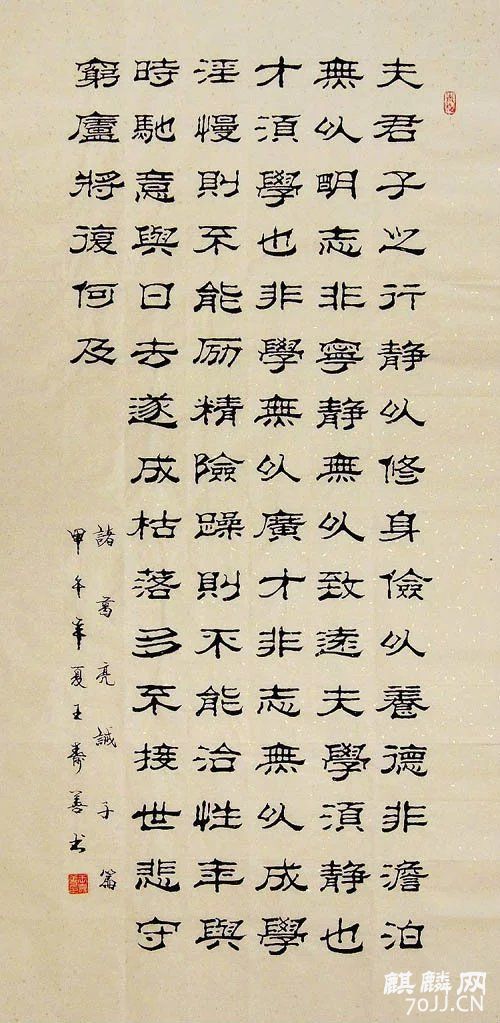 夫君子之行静以修身儉以養德非澹泊
無以明志非寧静無以致遠夫學須静也
才須學也非學無以廣才非志無以成學
淫慢則不能励精險躁則不能治性年與
時馳意與日去遂成枯落多不接世悲守
窮廬將復何及
諸葛亮誡子篇
甲午年夏王壽善书
麒麟网
70JJ.CN